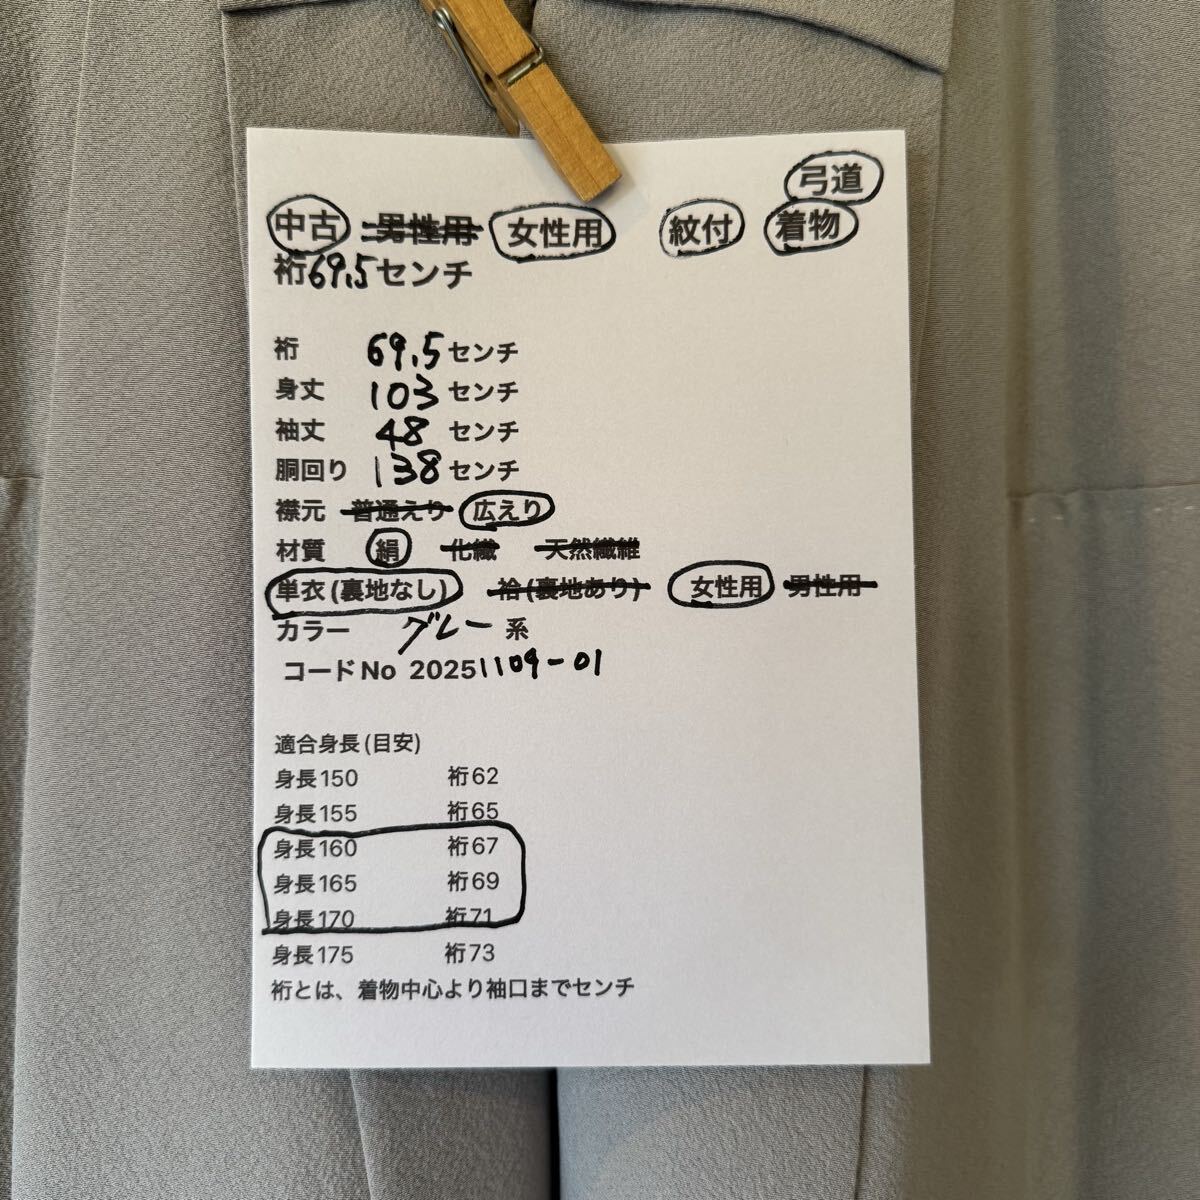 弓道
中古 男性用 女性用 紋付 着物
裄69.5センチ
裄 69.5センチ
身丈 103センチ
袖丈 48センチ
胴回り 138センチ
襟元 普通えり 広えり
材質 絹 化繊 天然繊維
単衣(裏地なし) 袷(裏地あり) 女性用 男性用
カラー グレー系
コードNo 20251109-01
適合身長(目安)
身長150 裄62
身長155 裄65
身長160 裄67
身長165 裄69
身長170 裄71
身長175 裄73
裄とは、着物中心より袖口までセンチ